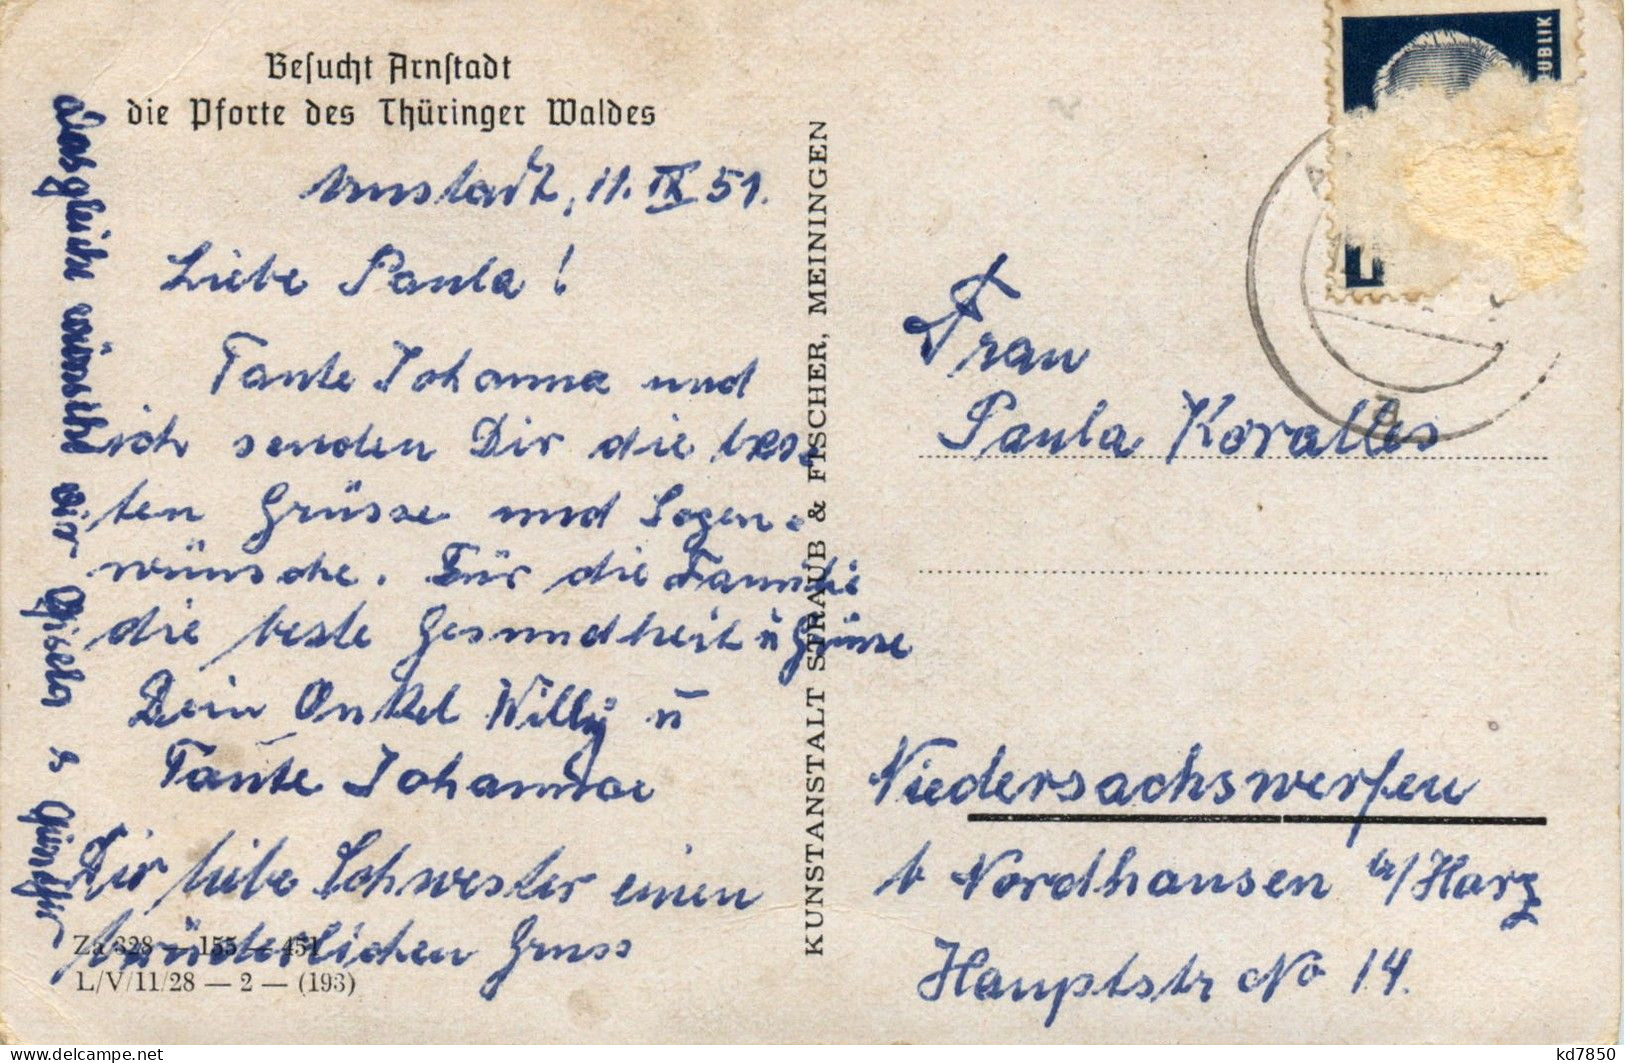 Besucht Arnstadt
die Pforte des Thüringer Waldes
Arnstadt, 11. IX 51.
Liebe Paula!
Tante Johanna und
ich senden Dir die bes
ten Grüsse und Segen-
wünsche. Für die Familie
die beste Gesundheit u Grüsse
Dein Onkel Willy u
Tante Johanna
Dir liebe Schwester einen
brüderlichen Gruss
Dasgleiche wünscht dir Gisela & Günther
Za 328 — 155 — 451
L/V/11/28 — 2 — (193)
KUNSTANSTALT STRAUB & FISCHER, MEININGEN
PUBLIK
Frau
Paula Koralles
Niedersachswerfen
b Nordhausen a/Harz
Hauptstr No 14.
kd7850
delcampe.net